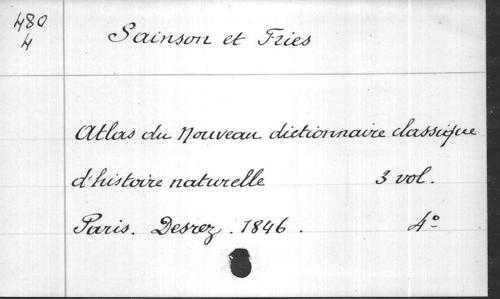 480
4
Sainson et Fries
Atlas du Nouveau dictionnaire classique
d'histoire naturelle 3 vol.
Paris. Desrez. 1846. 4°